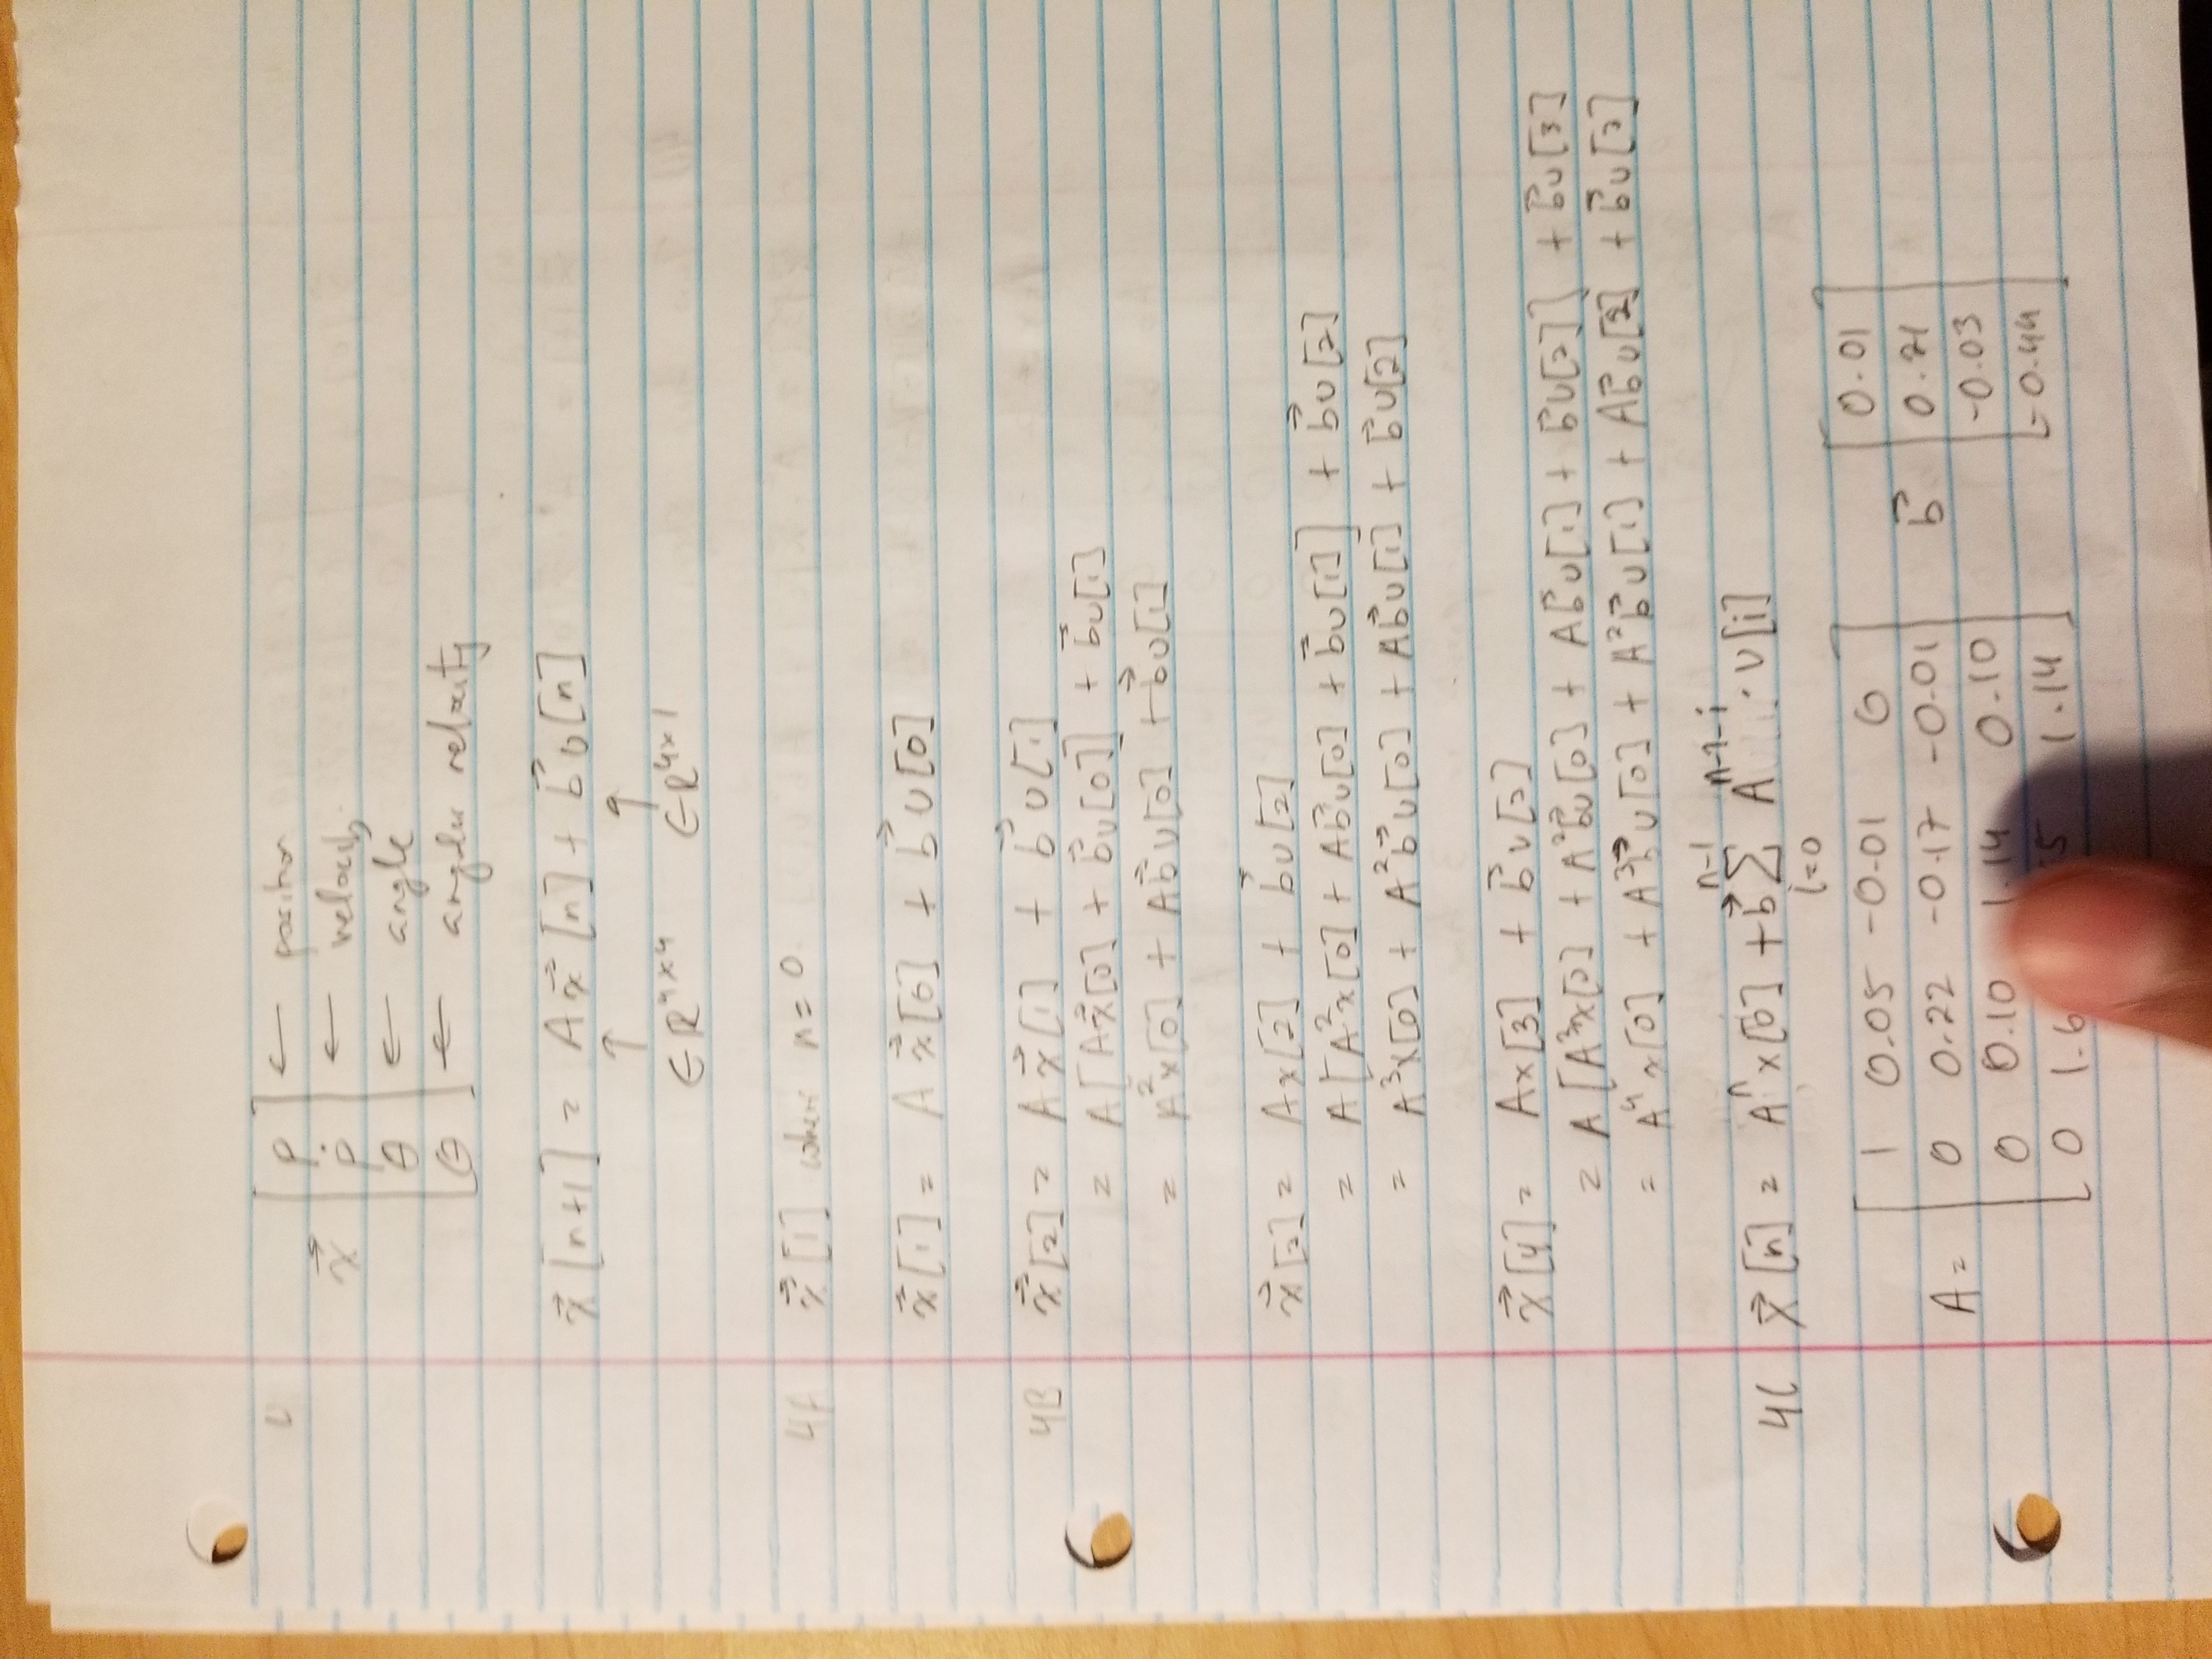 4
p ← position
x⃗ ṗ ← velocity
θ ← angle
θ̇ ← angular velocity
x⃗[n+1] = Ax⃗[n] + b⃗u[n]
↑ ↑
∈R⁴ˣ⁴ ∈R⁴ˣ¹
4A x⃗[1] where n=0
x⃗[1] = A x⃗[0] + b⃗u[0]
4B x⃗[2] = Ax⃗[1] + b⃗u[1]
= A[Ax⃗[0] + b⃗u[0]] + b⃗u[1]
= A²x[0] + Ab⃗u[0] + b⃗u[1]
x⃗[3] = Ax[2] + b⃗u[2]
= A[A²x[0] + Ab⃗u[0] + b⃗u[1]] + b⃗u[2]
= A³x[0] + A²b⃗u[0] + Ab⃗u[1] + b⃗u[2]
x⃗[4] = Ax[3] + b⃗u[3]
= A[A³x[0] + A²b⃗u[0] + Ab⃗u[1] + b⃗u[2]] + b⃗u[3]
= A⁴x[0] + A³b⃗u[0] + A²b⃗u[1] + Ab⃗u[2] + b⃗u[3]
n-1 n-1-i
4C x⃗[n] = Aⁿx[0] + b⃗ Σ A · u[i]
i=0
1 0.05 -0.01 0 0.01
A= 0 0.22 -0.17 -0.01 b⃗ 0.21
0 0.10 1.14 0.10 -0.03
0 1.14 -0.44